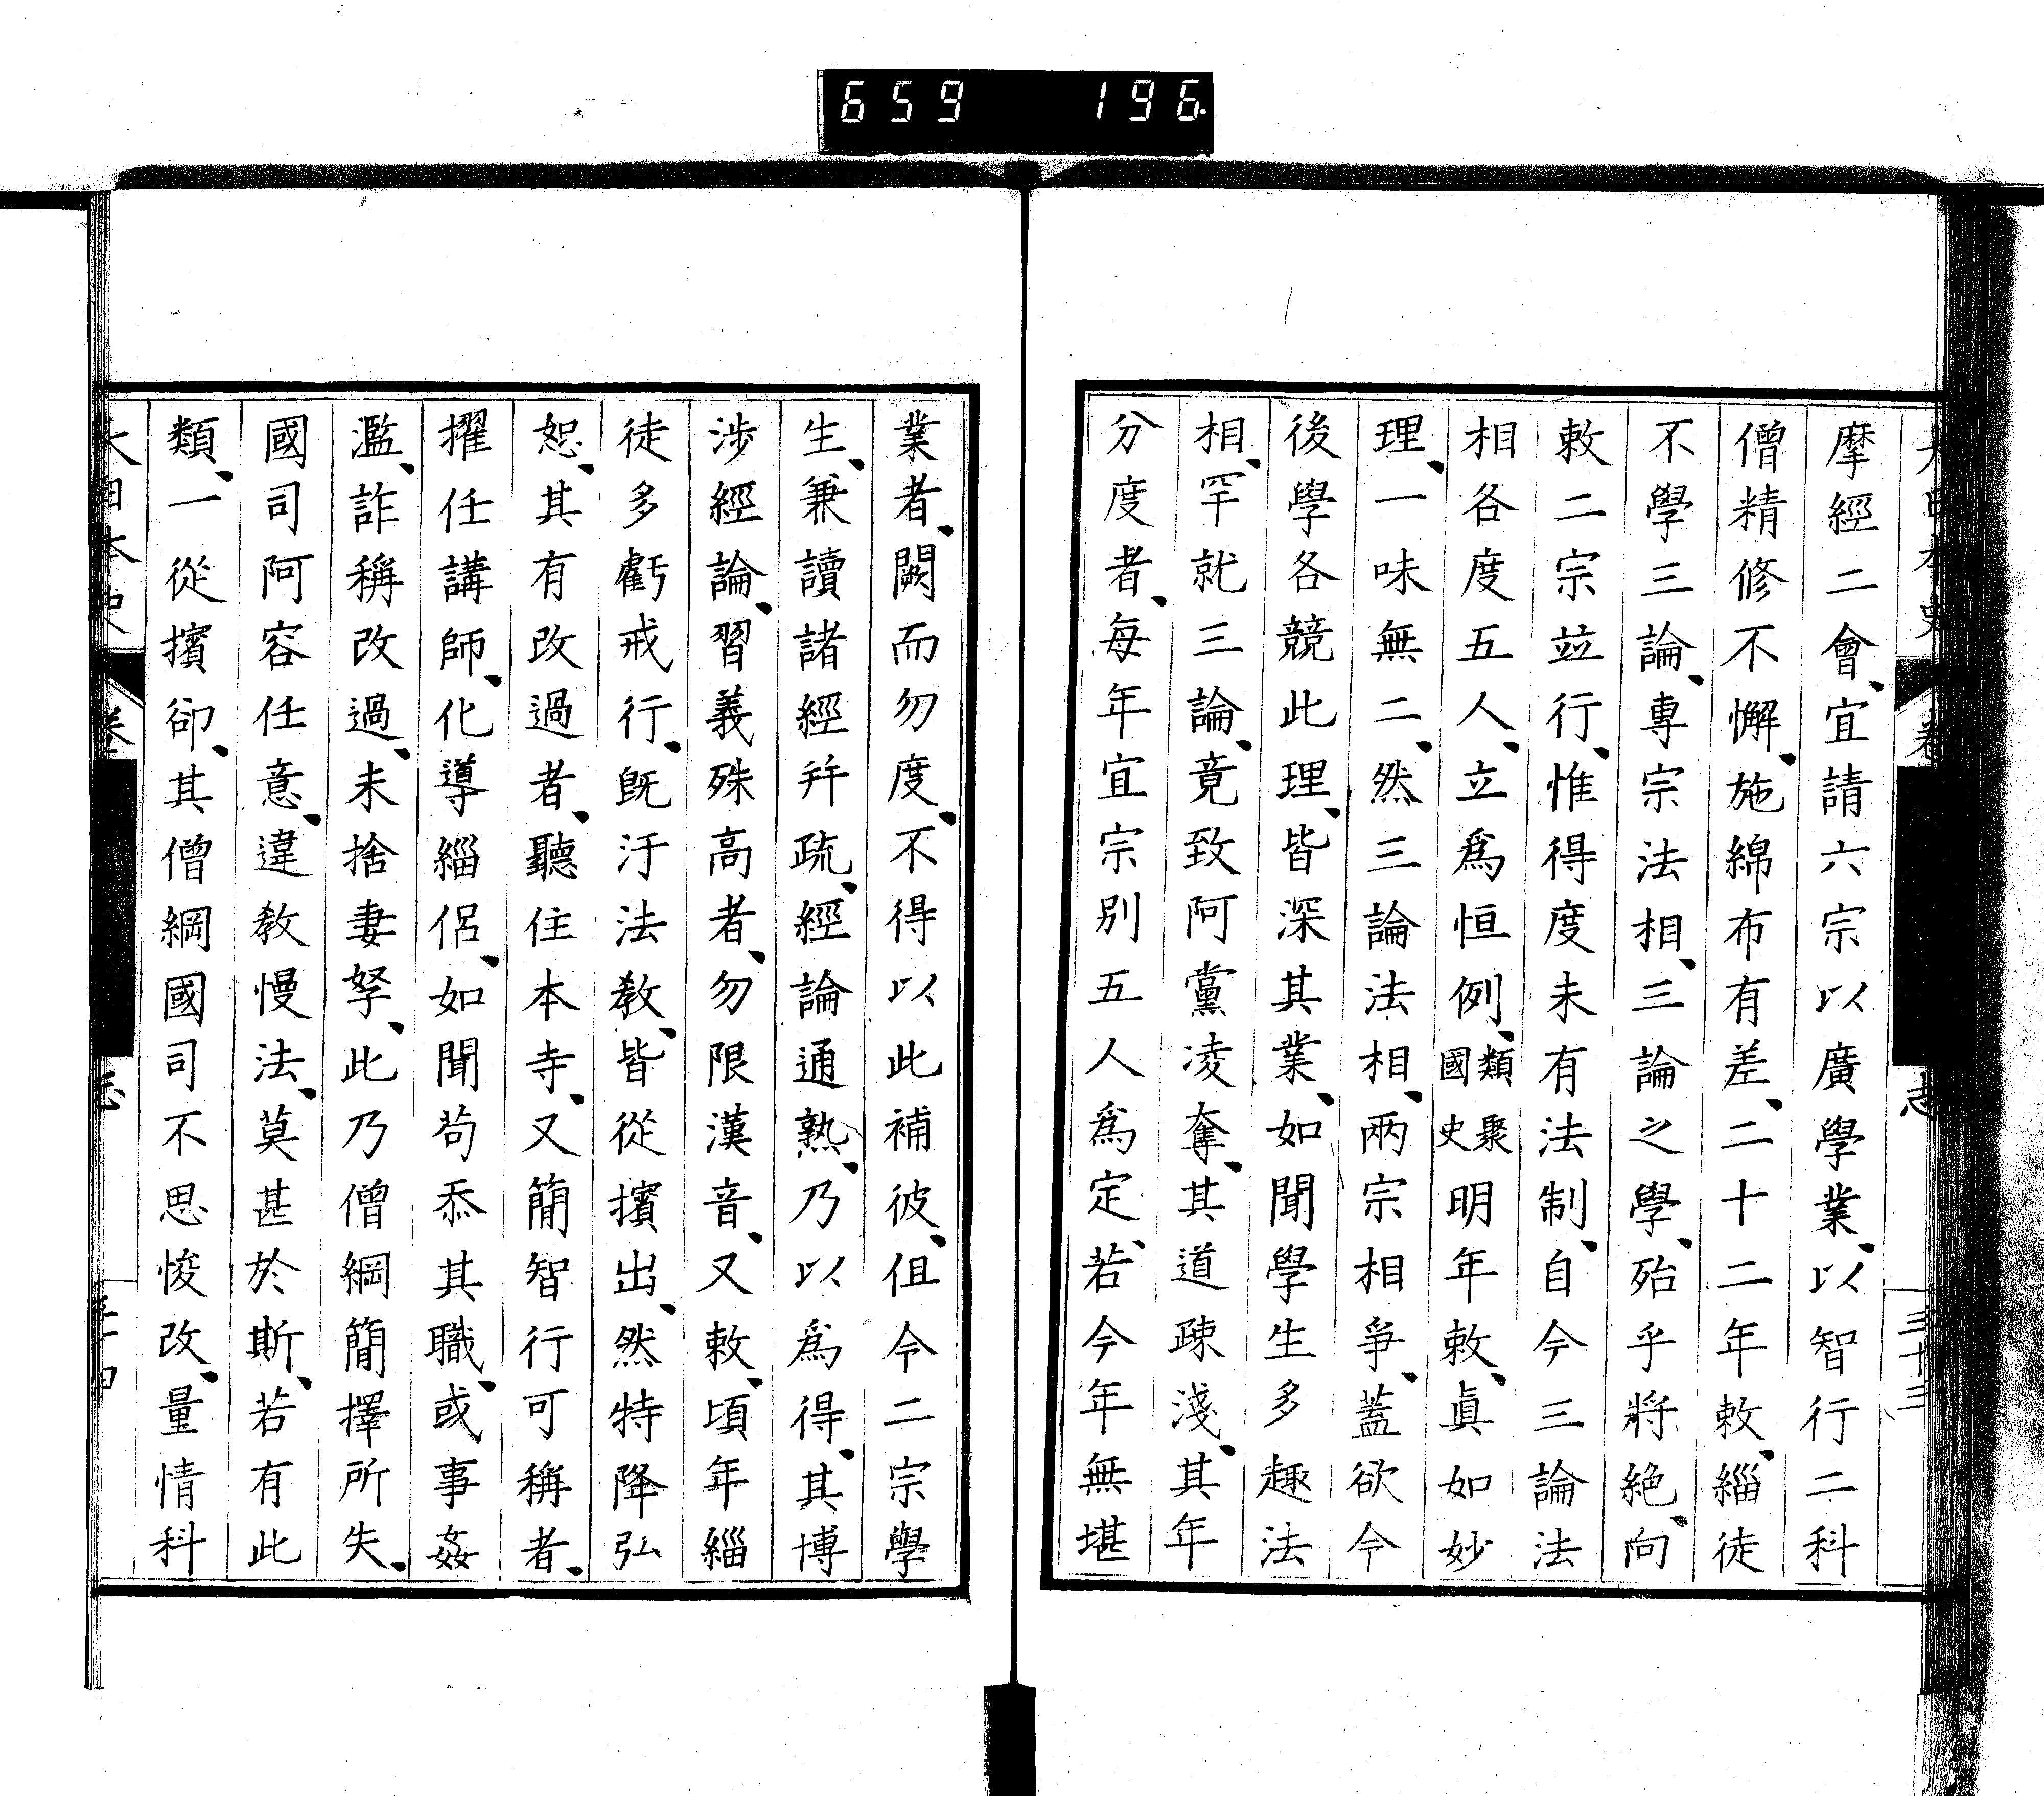 659 196.
大日本史 卷 志 三十三
摩經二會、宜請六宗以廣學業、以智行二科
僧精修不懈、施綿布有差、二十二年敕、緇徒
不學三論、專宗法相、三論之學、殆乎將絶、向
敕二宗竝行、惟得度未有法制、自今三論法
相各度五人、立爲恒例、類聚國史明年敕、眞如妙
理、一味無二、然三論法相、兩宗相爭、蓋欲令
後學各競此理、皆深其業、如聞學生多趣法
相、罕就三論、竟致阿黨凌奪、其道疎淺、其年
分度者、每年宜宗別五人爲定、若今年無堪
業者、闕而勿度、不得以此補彼、但令二宗學
生、兼讀諸經幷疏、經論通熟、乃以爲得、其博
涉經論、習義殊高者、勿限漢音、又敕、頃年緇
徒多虧戒行、既汙法教、皆從擯出、然特降弘
恕、其有改過者、聽住本寺、又簡智行可稱者、
擢任講師、化導緇侶、如聞苟忝其職、或事姦
濫、詐稱改過、未捨妻孥、此乃僧綱簡擇所失、
國司阿容任意、違教慢法、莫甚於斯、若有此
類、一從擯卻、其僧綱國司不思悛改、量情科
大日本史 卷 志 三十四